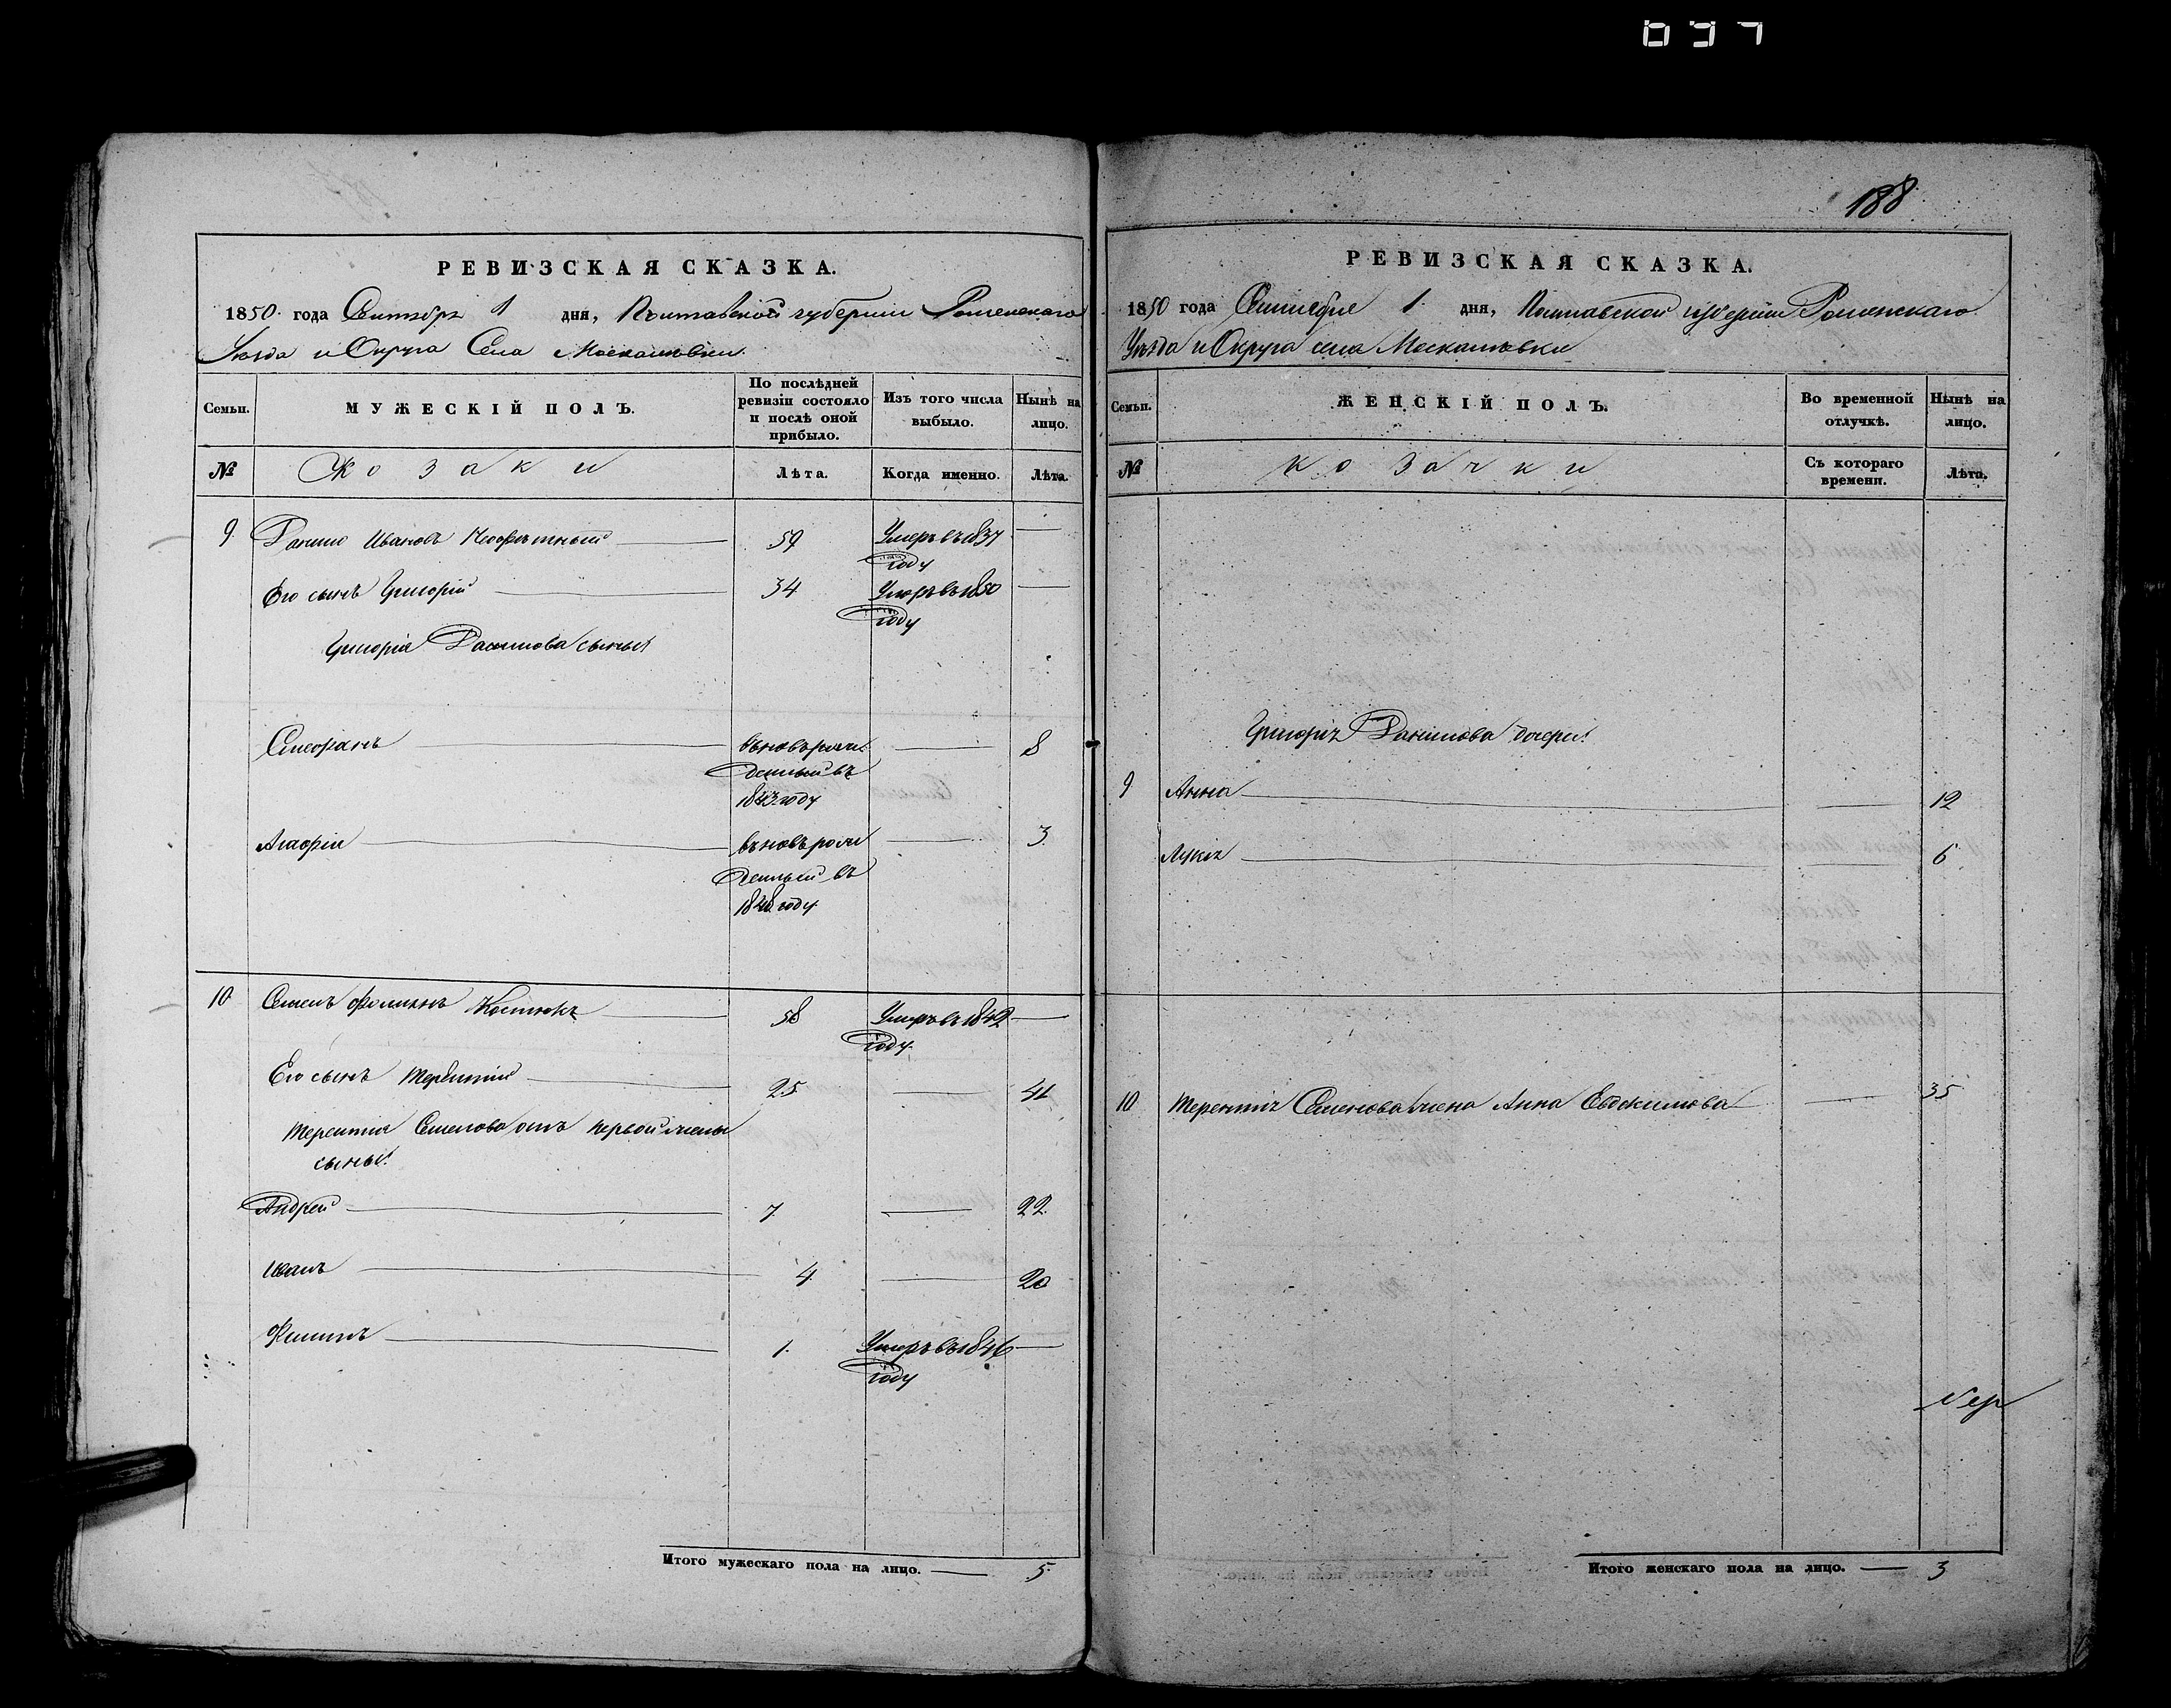 037
188
РЕВИЗСКАЯ СКАЗКА.
1850 года Сентября 1 дня, Полтавской губернии Роменскаго
Уезда и Округа Села Москалювки.
Семьи.
МУЖЕСКІЙ ПОЛЪ.
По послѣдней ревизіи состояло и послѣ оной прибыло.
Изъ того числа выбыло.
Нынѣ на лицо.
№
Козаки
Лѣта.
Когда именно.
Лѣта.
9. Данило Ивановъ 59 Умеръ въ 1837
году
Его сынъ Григорій 34 Умеръ въ 1850
году
Григорія Данилова сынья
Стефанъ вновь рож 8
денный въ
1843 году
Агафій вновь рож 3
денный въ
1848 году
10 Семенъ Фоминъ Костюкъ 58 Умеръ въ 1842
году
Его сынъ Терентій 25 41
Терентія Семенова отъ первой жены
сынья
Андрей 7 22
Иванъ 4 20
Филипъ 1. Умеръ въ 1846
году
Итого мужескаго пола на лицо. 5.
РЕВИЗСКАЯ СКАЗКА.
1850 года Сентября 1 дня, Полтавской губерніи Роменскаго
Уѣзда и Округа села Москалювки
Семьи.
ЖЕНСКІЙ ПОЛЪ.
Во временной отлучкѣ.
Нынѣ на лицо.
№
козачки
Съ котораго времени.
Лѣта.
Григорія Данилова дочери
9 Анна 12
Лукія 6
10 Терентія Семенова жена Анна Евдокимова 35
Итого женскаго пола на лицо. 3